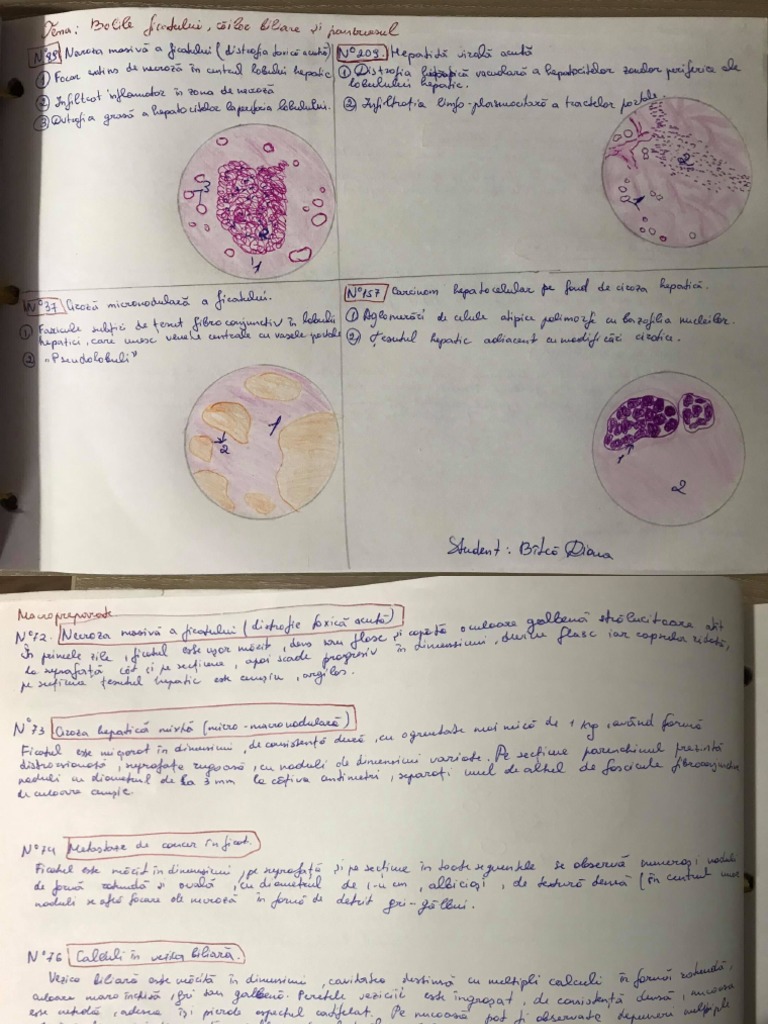 Tema: Bolile ficatului, căilor biliare și pancreasul
N°25 Necroza masivă a ficatului (distrofia toxică acută)
① Focar extins de necroză în centrul lobului hepatic
② Infiltrat inflamator în zona de necroză
③ Distrofia grasă a hepatocitelor la periferia lobulului.
3
2
1
N°209. Hepatită virală acută
① Distrofia vacuolară a hepatocitelor zonelor periferice ale
lobulului hepatic.
② Infiltrația limfo-plasmocitară a tractelor portale.
2
1
N°37 Ciroză micronodulară a ficatului.
① Fascicule subțiri de țesut fibroconjunctiv în lobulii
hepatici, care unesc venele centrale cu vasele portale
② „Pseudolobuli"
1
2
N°157 Carcinom hepatocelular pe fond de ciroza hepatică.
① Aglomerări de celule atipice polimorfe cu bazofilia nucleilor.
② Țesutul hepatic adiacent cu modificări cirotice.
1
2
Student: Bîtcă Diana
Macropreparate
N°72. Necroza masivă a ficatului (distrofie toxică acută)
În primele zile, ficatul este ușor mărit, dens sau flasc și capătă o culoare galbenă strălucitoare atît
la suprafață cît și pe secțiune, apoi scade progresiv în dimensiuni, devine flasc iar capsula ridată,
pe secțiune țesutul hepatic este cenușiu, argilos.
N°73 Ciroza hepatică mixtă (micro-macronodulară)
Ficatul este micșorat în dimensiuni, de consistență dură, cu o greutate mai mică de 1 kg, avînd formă
distorsionată, suprafața rugoasă, cu noduli de dimensiuni variate. Pe secțiune parenchimul prezintă
noduli cu diametrul de la 3 mm la cîțiva centimetri, separați unul de altul de fascicule fibroconjunctive
de culoare cenușie.
N°74 Metastaze de cancer în ficat.
Ficatul este mărit în dimensiuni, pe suprafață și pe secțiune în toate segmentele se observă numeroși noduli
de formă rotundă și ovală, cu diametrul de cm, albicioși, de textură densă (în centrul unor
noduli se află focare de necroză în formă de detrit gri-gălbui.
N°76 Calculi în vezica biliară.
Vezica biliară este mărită în dimensiuni, cavitatea destinsă cu multipli calculi în formă rotundă,
culoare maro închisă, gri sau galbenă. Peretele vezicii este îngroșat, de consistență densă, mucoasa
este netedă, adesea își pierde aspectul catifelat. Pe mucoasă pot fi observate depuneri multiple